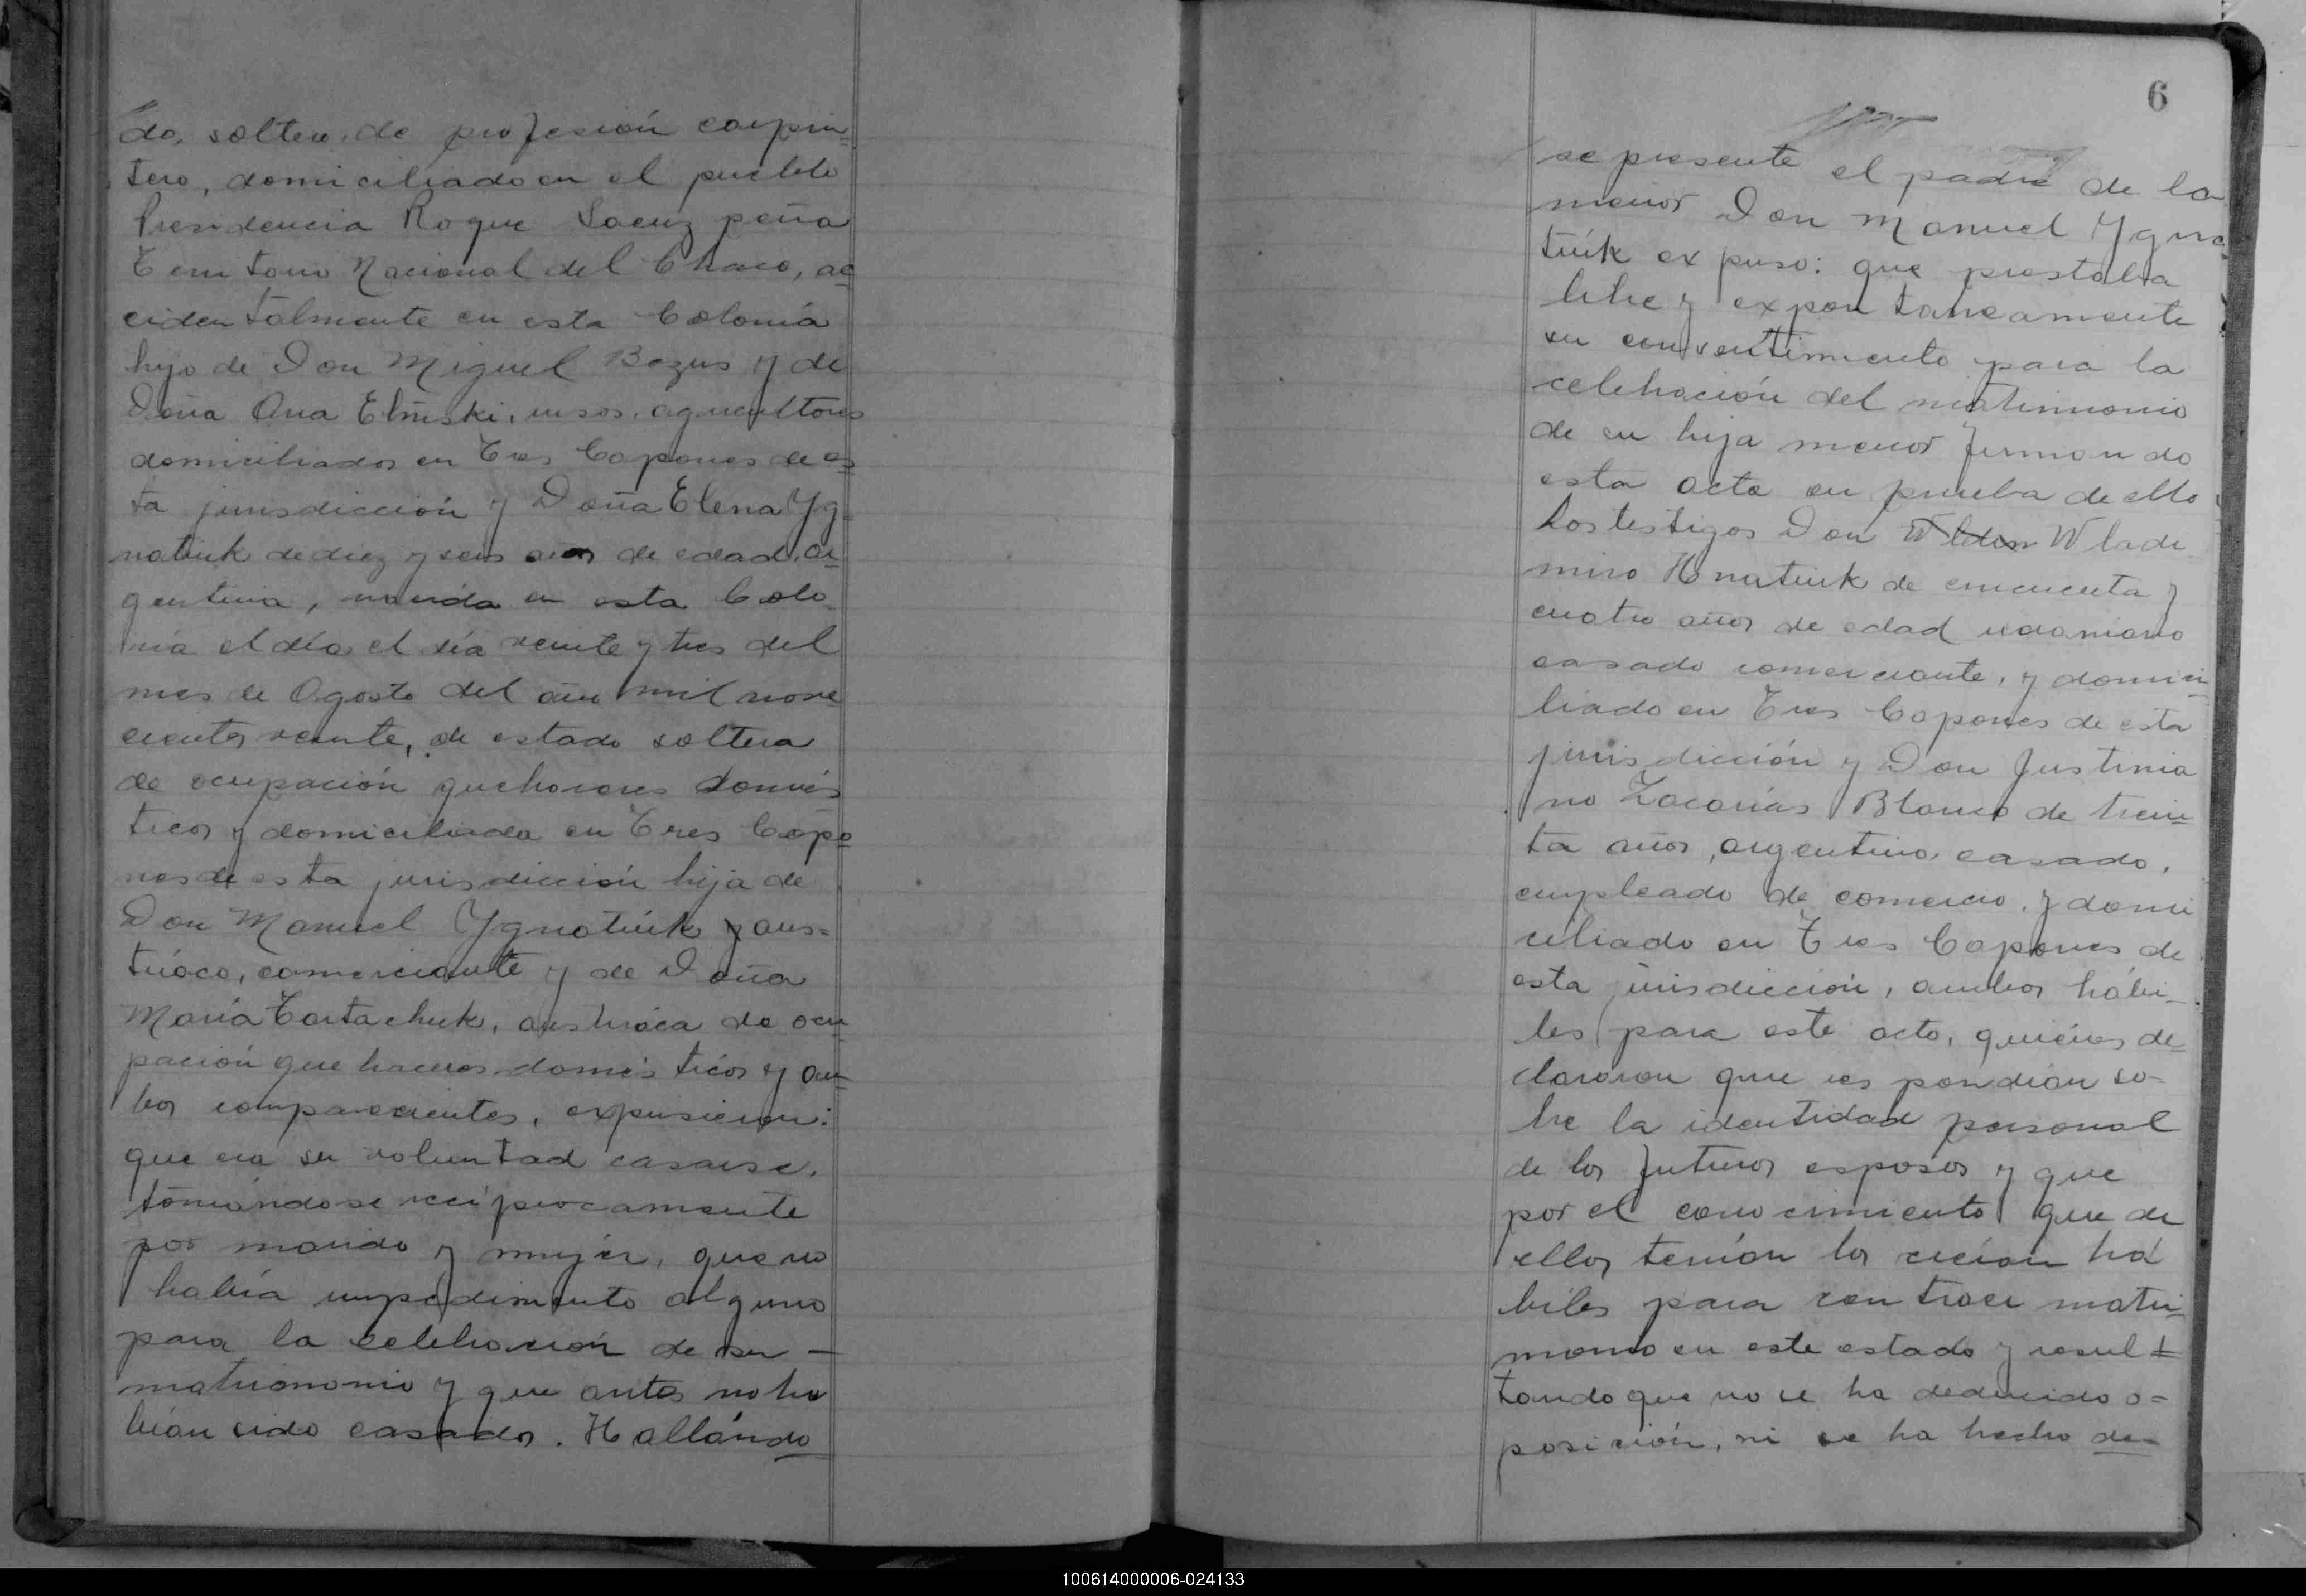 do, soltero, de profesión carpin=
tero, domiciliado en el pueblo
Presidencia Roque Saenz peña
Territorio Nacional del Chaco, ac
cidentalmente en esta Colonia
hijo de Don Miguel Bozus y de
Doña Ana Elnski, rusos, agricultores
domiciliados en Tres Capones de es
ta jurisdicción y Doña Elena Yg
natiuk de diez y seis años de edad, ar
gentina, nacida en esta Colo
nia el día el día veinte y tres del
mes de Agosto del año mil nove
cientos veinte, de estado soltera
de ocupación quehaceres domés
ticos y domiciliada en Tres Capo
nes de esta jurisdicción hija de
Don Manuel Ygnatiuk y aus=
triaco, comerciante y de Doña
María Tartachuk, austriaca de ocu
pación que haceres domésticos y am
bos comparecientes, expusieron:
que era su voluntad casarse,
tomándose reciprocamente
por marido y mujer, que no
había impedimento alguno
para la celebración de su —
matrimonio y que antes no ha
bían sido casados. Hallándo
6
se presente el padre de la
menor Don Manuel Ygna
tiuk expuso: que prestaba
libre y expontaneamente
su consentimiento para la
celebración del matrimonio
de su hija menor firmando
esta acta en prueba de ello
Los testigos Don Wladi
miro Hnatiuk de cincuenta y
cuatro años de edad ucraniano
casado comerciante, y domici
liado en Tres Capones de esta
jurisdicción y Don Justinia
no Zacarías Blanco de trein=
ta años, argentino, casado,
empleado de comercio, y domi
ciliado en Tres Capones de
esta jurisdicción, ambos hábi-
les para este acto, quiénes de
clararon que respondían so-
bre la identidad personal
de los futuros esposos y que
por el conocimiento que de
ellos tenían los creían há
biles para contraer matri=
monio en este estado y resul t
tando que no se ha deducido o=
posición, ni se ha hecho de-
100614000006-024133